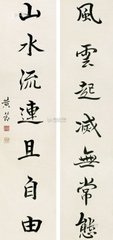 風雲起滅無常態
山水流連且自由